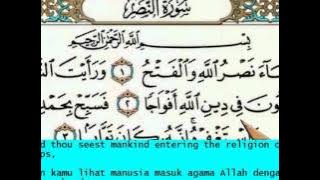 سُورَةُ النَّصْرِ
بِسْمِ اللَّهِ الرَّحْمَٰنِ الرَّحِيمِ
آءَ نَصْرُ اللَّهِ وَالْفَتْحُ ١ وَرَأَيْتَ
ونَ فِي دِينِ اللَّهِ أَفْوَاجًا ٢ فَسَبِّحْ بِحَمْدِ
٣
d thou seest mankind entering the religion o
os,
n kamu lihat manusia masuk agama Allah denga